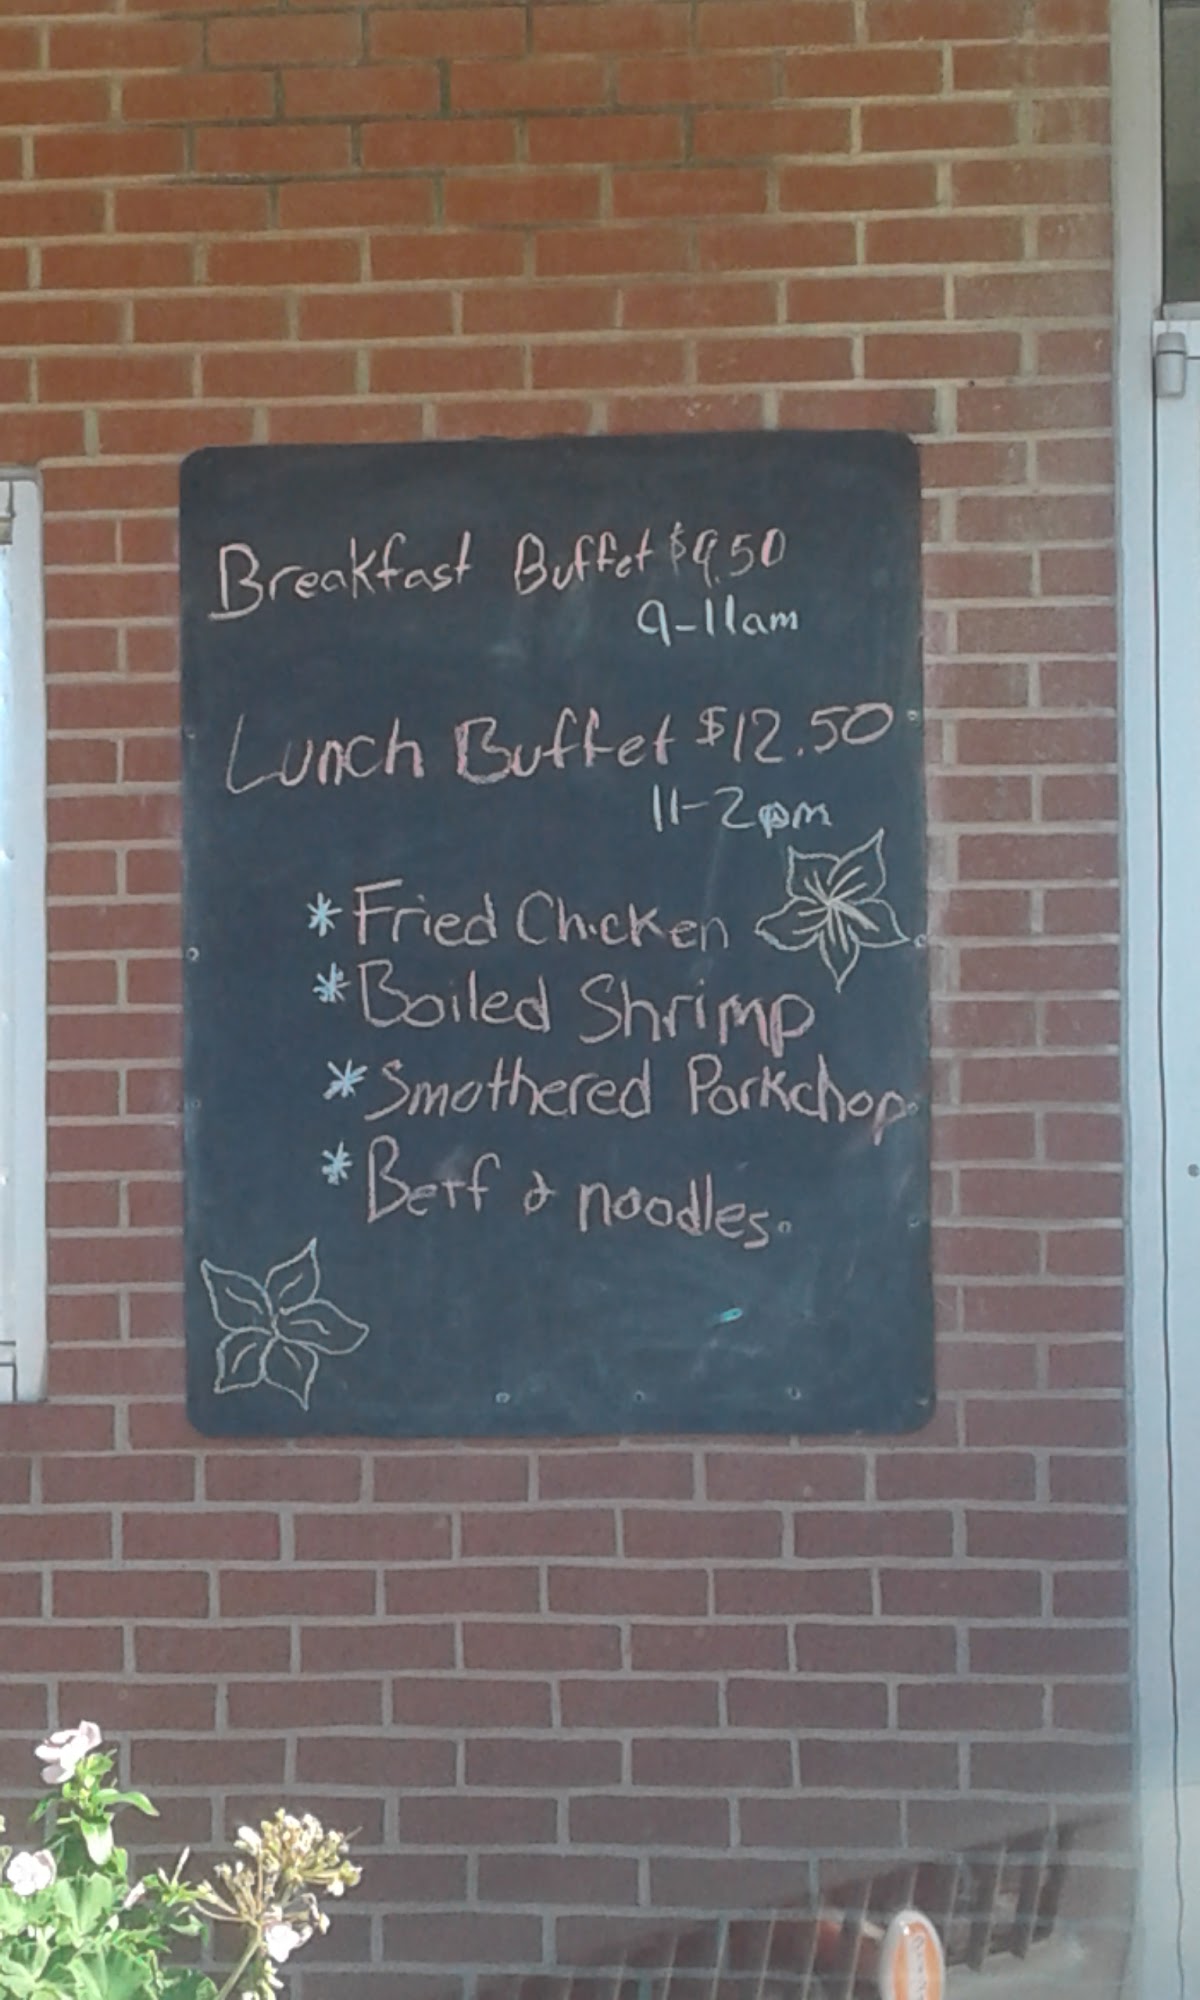 Breakfast Buffet $9.50
9-11am
Lunch Buffet $12.50
11-2pm
* Fried Chicken
* Boiled Shrimp
* Smothered Porkchop
* Beef & noodles.